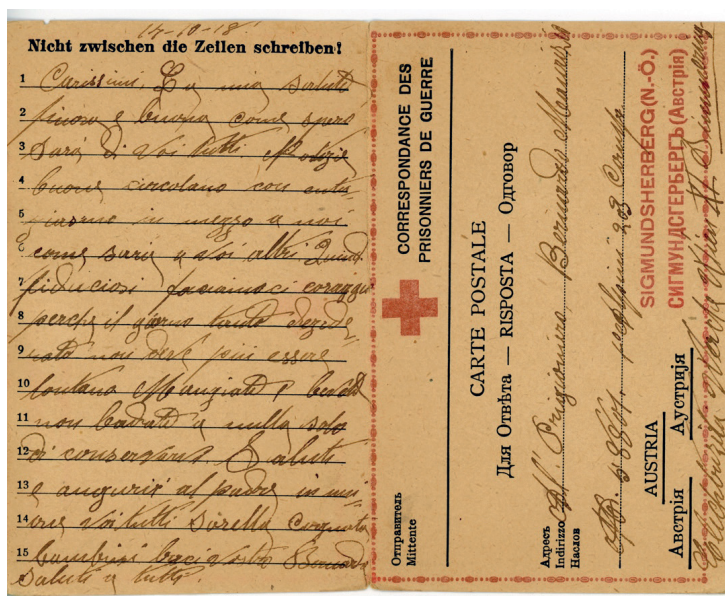 17-10-18
Nicht zwischen die Zeilen schreiben!
1 Carissimi. La mia salute
2 finora è buona come spero
3 sarà di voi tutti. Notizie
4 buone circolano con entu-
5 siasmo in mezzo a noi
6 come sarà a voi altri Quindi
7 fiduciosi facciamoci coraggio
8 perchè il giorno tanto deside-
9 rato non deve più essere
10 lontano Mangiate e bevete
11 non badate a nulla solo
12 di conservarvi. Saluti
13 e auguri al padre in
14 voi tutti sorella cognato
15 bambini baci Vostro Bernardo
Saluti a tutti.
CORRESPONDANCE DES
PRISONNIERS DE GUERRE
CARTE POSTALE
Для Отвѣта — RISPOSTA — Одговор
Отправитель
Mittente
Адресъ
Indirizzo
Наслов
Al Prigioniero Bernardo
203 Comp
SIGMUNDSHERBERG (N.-Ö.)
СИГМУНДСГЕРБЕРГЪ (Австрія)
AUSTRIA
Австрія Аустрија